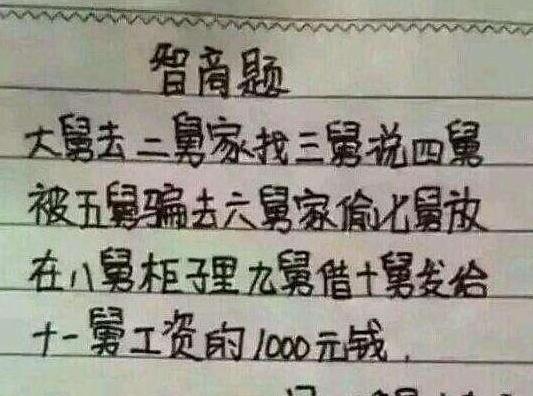 智商题
大舅去二舅家找三舅说四舅
被五舅骗去六舅家偷七舅放
在八舅柜子里九舅借十舅发给
十一舅工资的1000元钱.